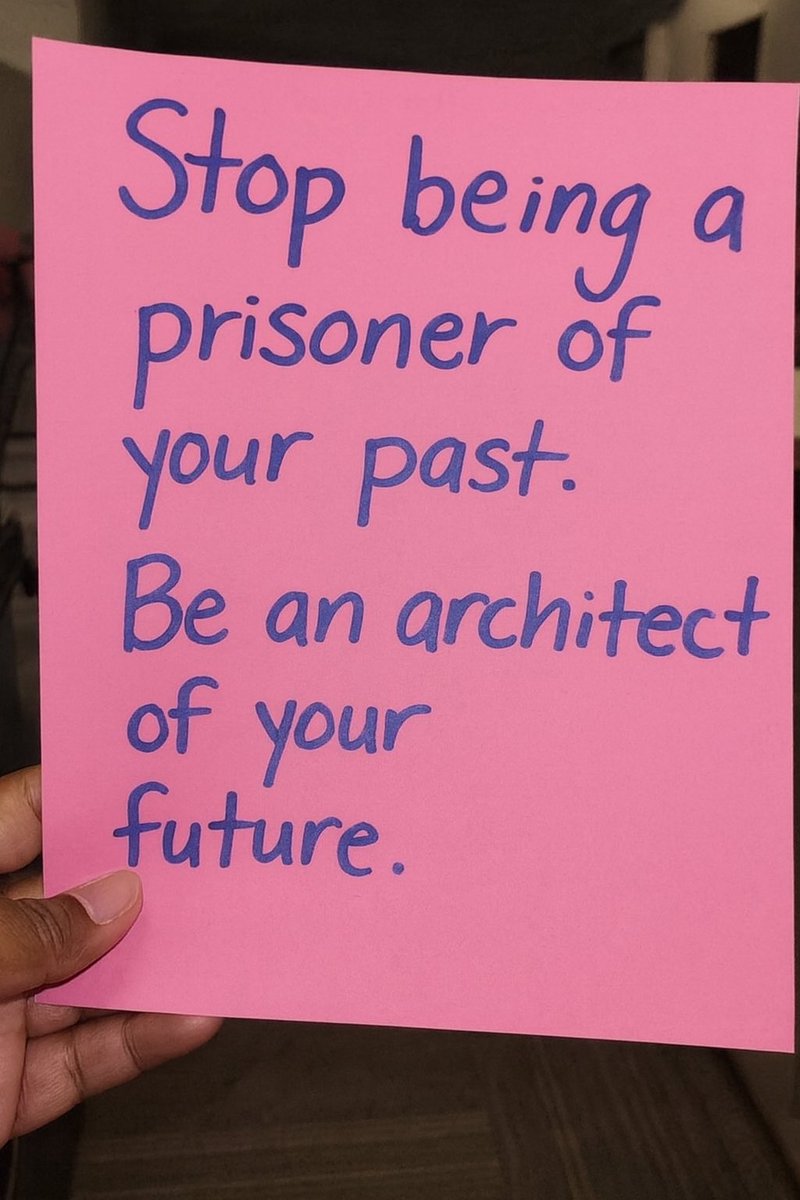 Stop being a
prisoner of
your past.
Be an architect
of your
future.